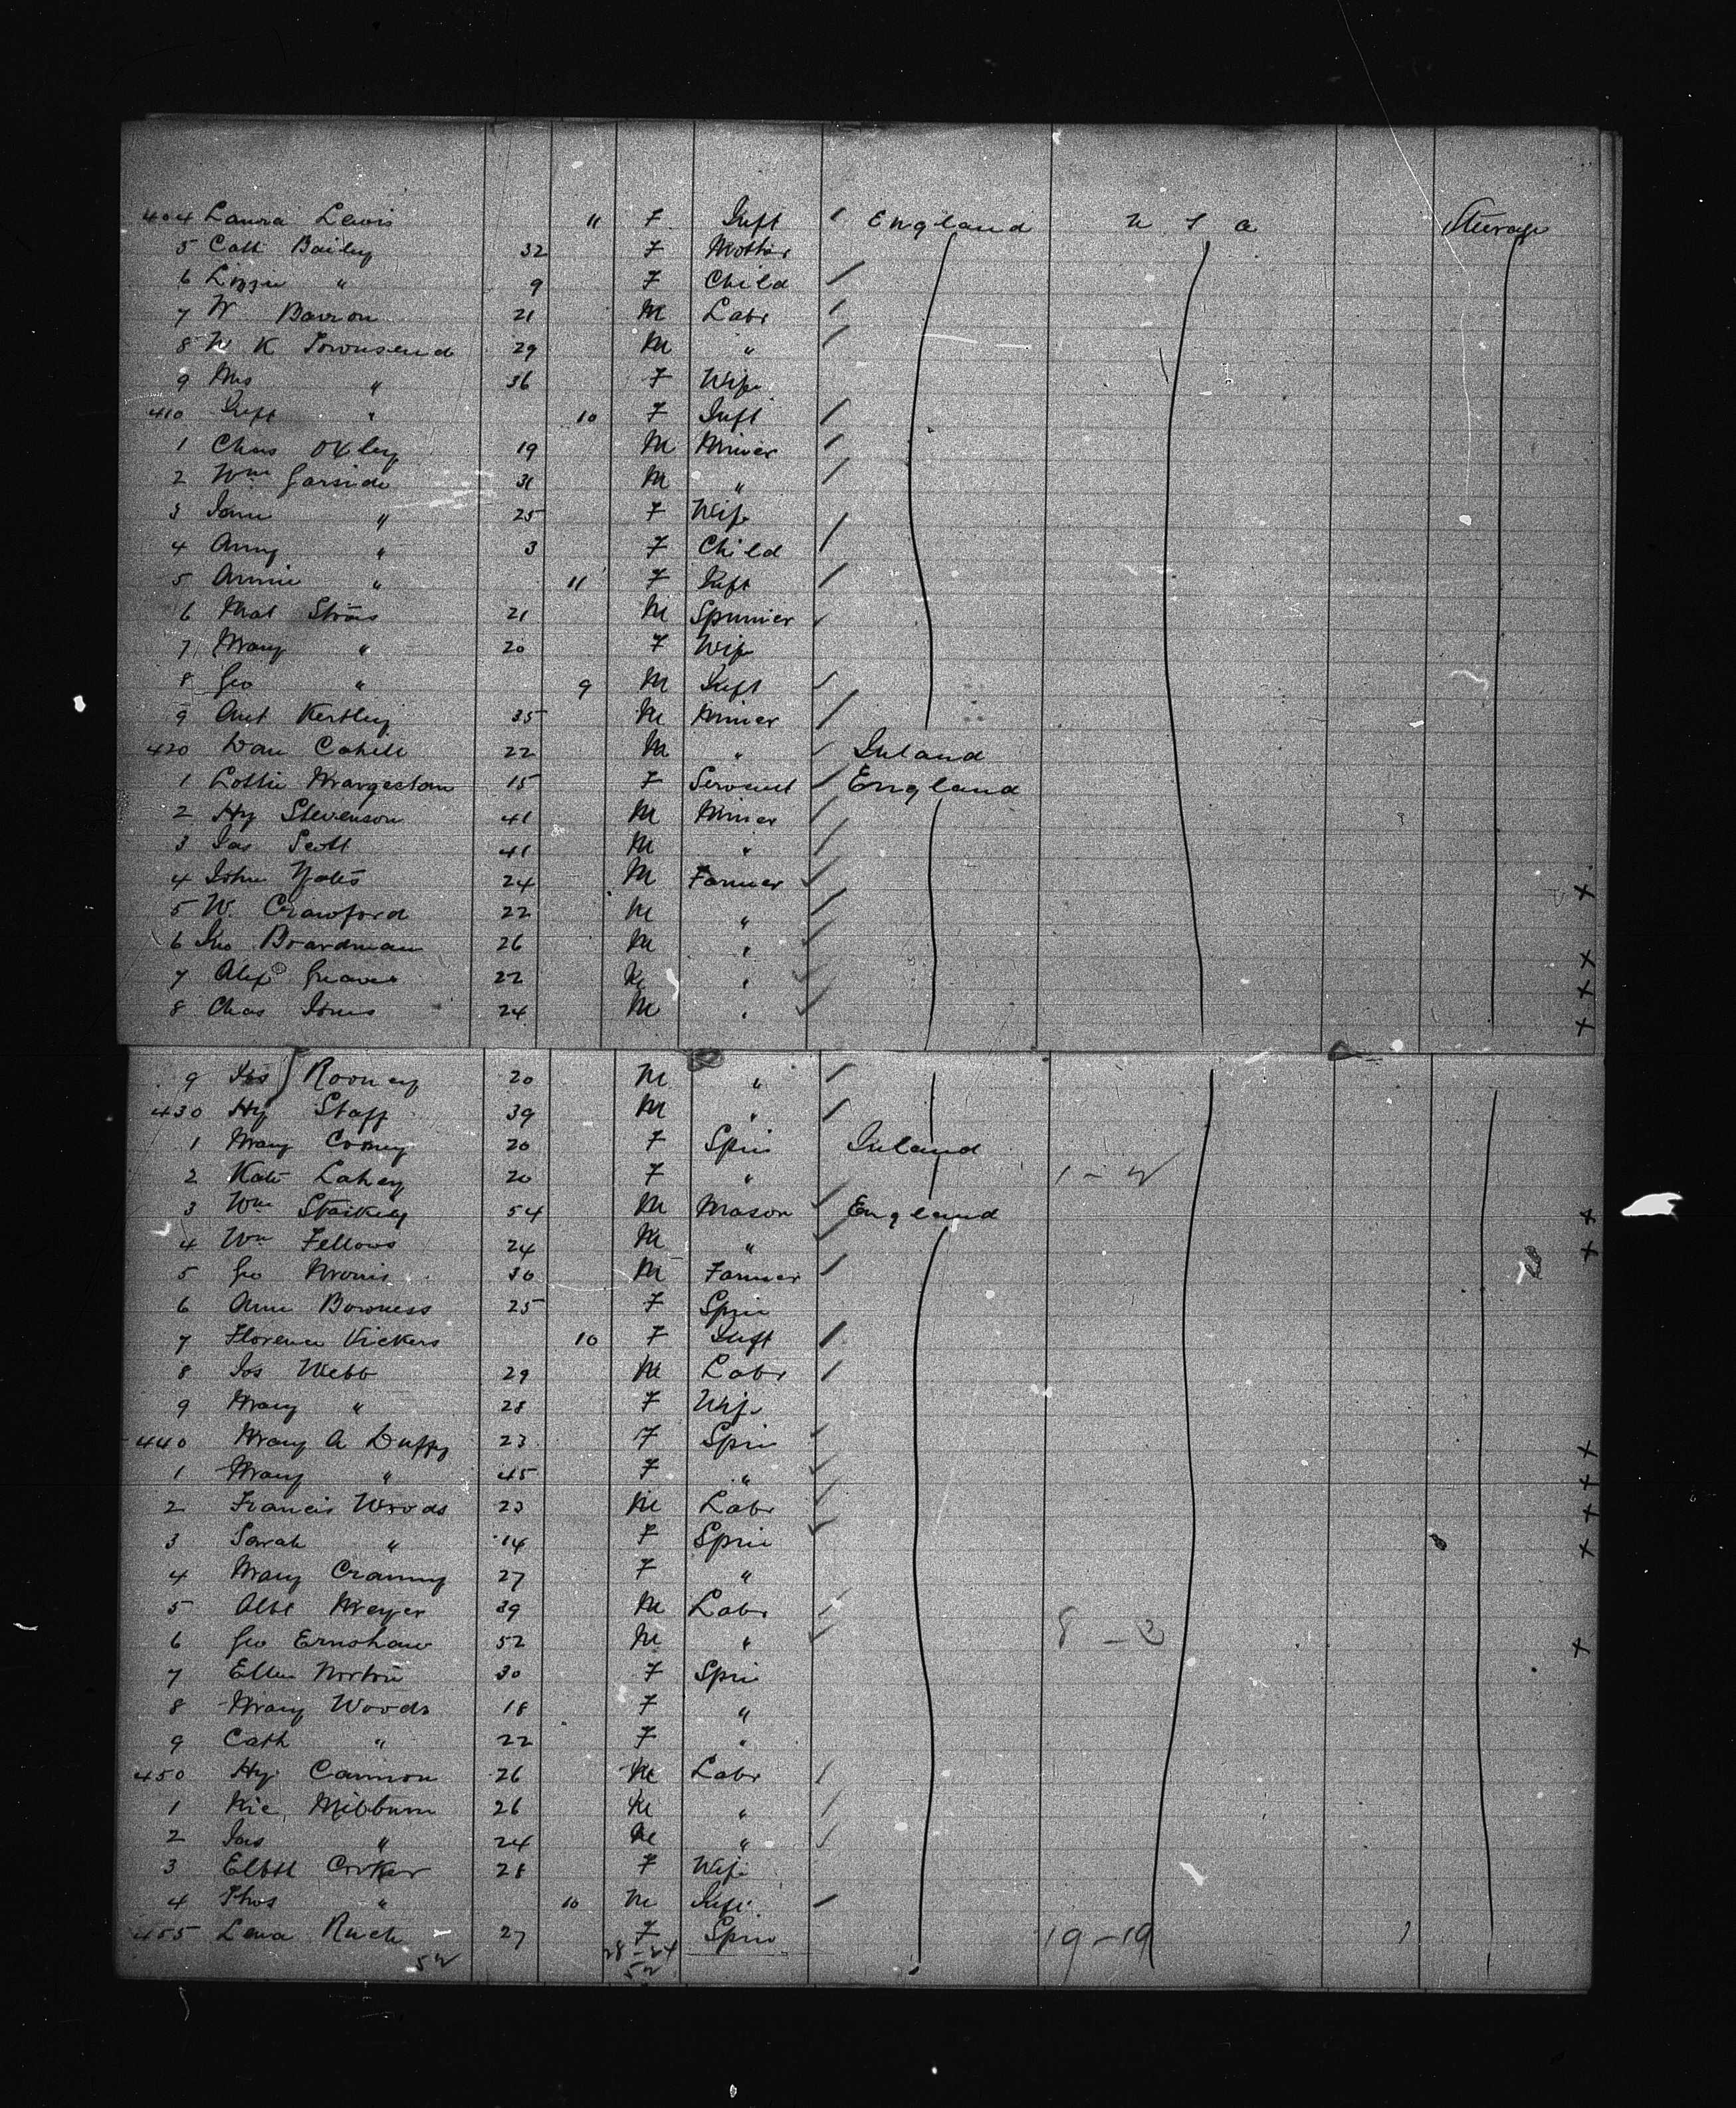 404 Laura Lewis 11 F Inft England U S A Steerage
5 Cath Bailey 32 F Mother
6 Lizzie " 9 F Child
7 W Barron 21 M Labr
8 W K Townsend 29 M "
9 Mrs " 36 F Wife
410 Inft " 10 F Inft
1 Chas Oxley 19 M Miner
2 Wm Garside 31 M "
3 Jane " 25 F Wife
4 Amy " 3 F Child
5 Annie " 11 F Inft
6 Mat 21 M Spinner
7 Mary " 20 F Wife
8 Geo " 9 M Inft
9 Ant Kertley 35 M Miner
420 Dan Cahill 22 M " Ireland
1 Lottie 15 F Servant England
2 Hy Stevenson 41 M Miner
3 Jas Scott 41 M "
4 John Yates 24 M Farmer X
5 W. Crawford 22 M "
6 Jno Boardman 26 M " X
7 Alex Greaves 22 M " X
8 Chas Jones 24 M " X
9 Jos Rooney 20 M "
430 Hy Stapp 39 M "
1 Mary 20 F Spin Ireland
2 Kate Lahey 20 F " 1 - 2
3 Wm 54 M Mason England X
4 Wm Fellows 24 M " X
5 Geo Morris 30 M Farmer
6 Ann Bowness 25 F Spin
7 Florence Vickers 10 F Inft
8 Jos Webb 29 M Labr
9 Mary " 28 F Wife
440 Mary A Duffy 23 F Spin X
1 Mary " 45 F " X
2 Francis Woods 23 M Labr X
3 Sarah " 14 F Spin X
4 Mary 27 F "
5 Albt Meyer 39 M Labr
6 Geo Ernshaw 52 M " 8 - 3 X
7 Ellen Norton 30 F Spin
8 Mary Woods 18 F "
9 Cath " 22 F "
450 Hy Cannon 26 M Labr
1 Ric Milburn 26 M "
2 Jas " 24 M "
3 Elbth Corker 28 F Wife
4 Thos " 10 M Inft
455 Lena 27 F Spin 19 - 19 1
52 28 - 24
52